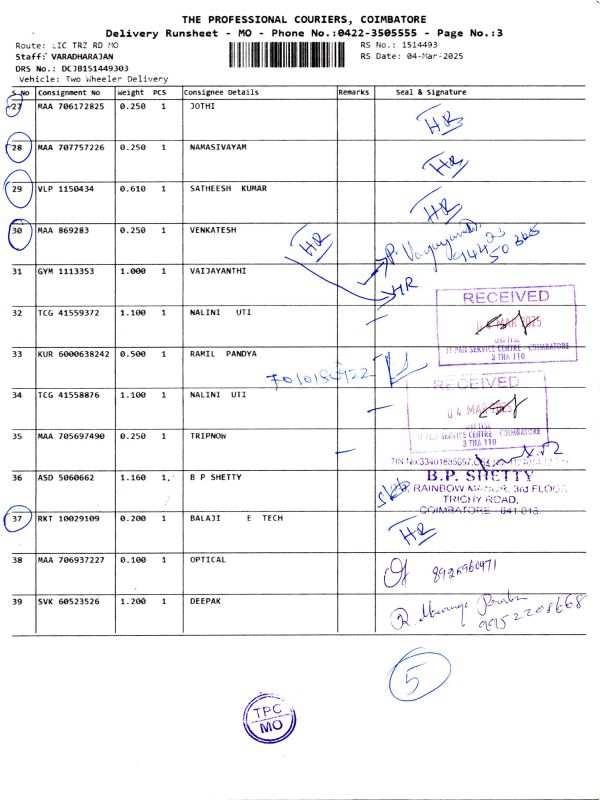 THE PROFESSIONAL COURIERS, COIMBATORE
Delivery Runsheet - MO - Phone No.:0422-3505555 - Page No.:3
Route: LIC TRZ RD MO
RS No.: 1514493
Staff: VARADHARAJAN
RS Date: 04-Mar-2025
DRS No.: DCJB151449303
Vehicle: Two Wheeler Delivery
S No Consignment No Weight PCS Consignee Details Remarks Seal & Signature
27 MAA 706172825 0.250 1 JOTHI
HR
28 MAA 707757226 0.250 1 NAMASIVAYAM
HR
29 VLP 1150434 0.610 1 SATHEESH KUMAR
HR
30 MAA 869283 0.250 1 VENKATESH
HR
31 GYM 1113353 1.000 1 VAIJAYANTHI
HR
32 TCG 41559372 1.100 1 NALINI UTI
RECEIVED
04 MAR 2025
IT PAR SERVICE CENTRE - COIMBATORE
3 THA 110
33 KUR 6000638242 0.500 1 RAMIL PANDYA
34 TCG 41558876 1.100 1 NALINI UTI
RECEIVED
04 MAR
IT PAR SERVICE CENTRE - COIMBATORE
3 THA 110
35 MAA 705697490 0.250 1 TRIPNOW
36 ASD 5060662 1.160 1 B P SHETTY
B.P. SHETTY
RAINBOW MANOR, 3rd FLOOR
TRICHY ROAD,
COIMBATORE - 641 018.
37 RKT 10029109 0.200 1 BALAJI E TECH
HR
38 MAA 706937227 0.100 1 OPTICAL
8926960471
39 SVK 60523526 1.200 1 DEEPAK
9952208668
5
TPC
MO